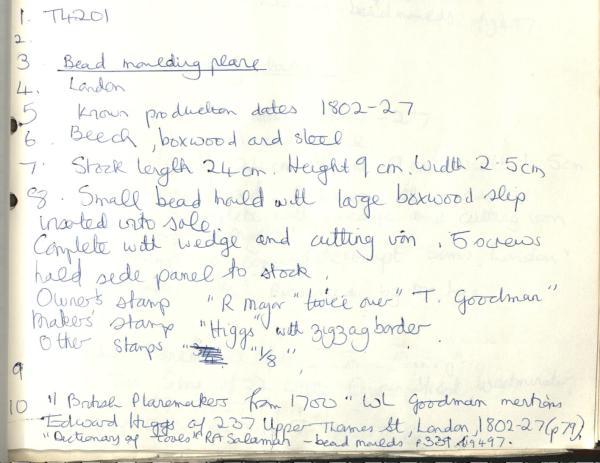 1. T4201
2.
3 Bead moulding plane
4. London
5 Known production dates 1802-27
6. Beech, boxwood and steel
7. Stock length 24cm. Height 9 cm. Width 2.5cm
8. Small bead mould with large boxwood slip
inserted into sole.
Complete with wedge and cutting iron. 5 screws
hold side panel to stock.
Owner's stamp "R Major" twice over "T. Goodman"
Makers' stamp "Higgs" with zigzag border.
Other stamps "1/8",
9
10 "British Planemakers from 1700" WL Goodman mentions
Edward Higgs of 237 Upper Thames St, London, 1802-27 (p79).
"Dictionary of Tools" RA Salaman - bead moulds p339 fig 497.